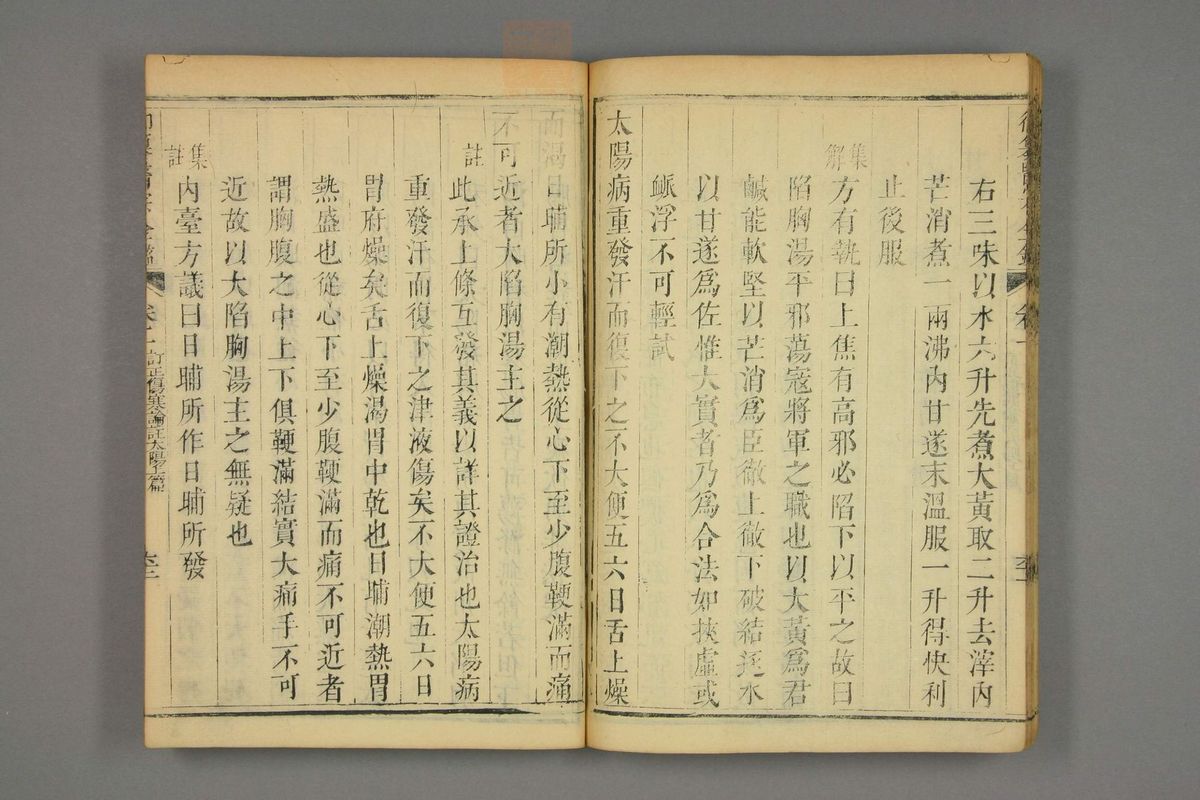 右三味以水六升先煮大黃取二升去滓內
芒消煮一兩沸內甘遂末溫服一升得快利
止後服
集解
方有執曰上焦有高邪必陷下以平之故曰
陷胸湯平邪蕩寇將軍之職也以大黃爲君
鹹能軟堅以芒消爲臣徹上徹下破結逐水
以甘遂爲佐惟大實者乃爲合法如挾虛或
脈浮不可輕試
太陽病重發汗而復下之不大便五六日舌上燥
而渴日晡所小有潮熱從心下至少腹鞕滿而痛
不可近者大陷胸湯主之
註
此承上條互發其義以詳其證治也太陽病
重發汗而復下之津液傷矣不大便五六日
胃府燥矣舌上燥渴胃中乾也日晡潮熱胃
熱盛也從心下至少腹鞕滿而痛不可近者
謂胸腹之中上下俱鞕滿結實大痛手不可
近故以大陷胸湯主之無疑也
集註
內臺方議曰日晡所作日晡所發
訂正傷寒論註太陽上篇